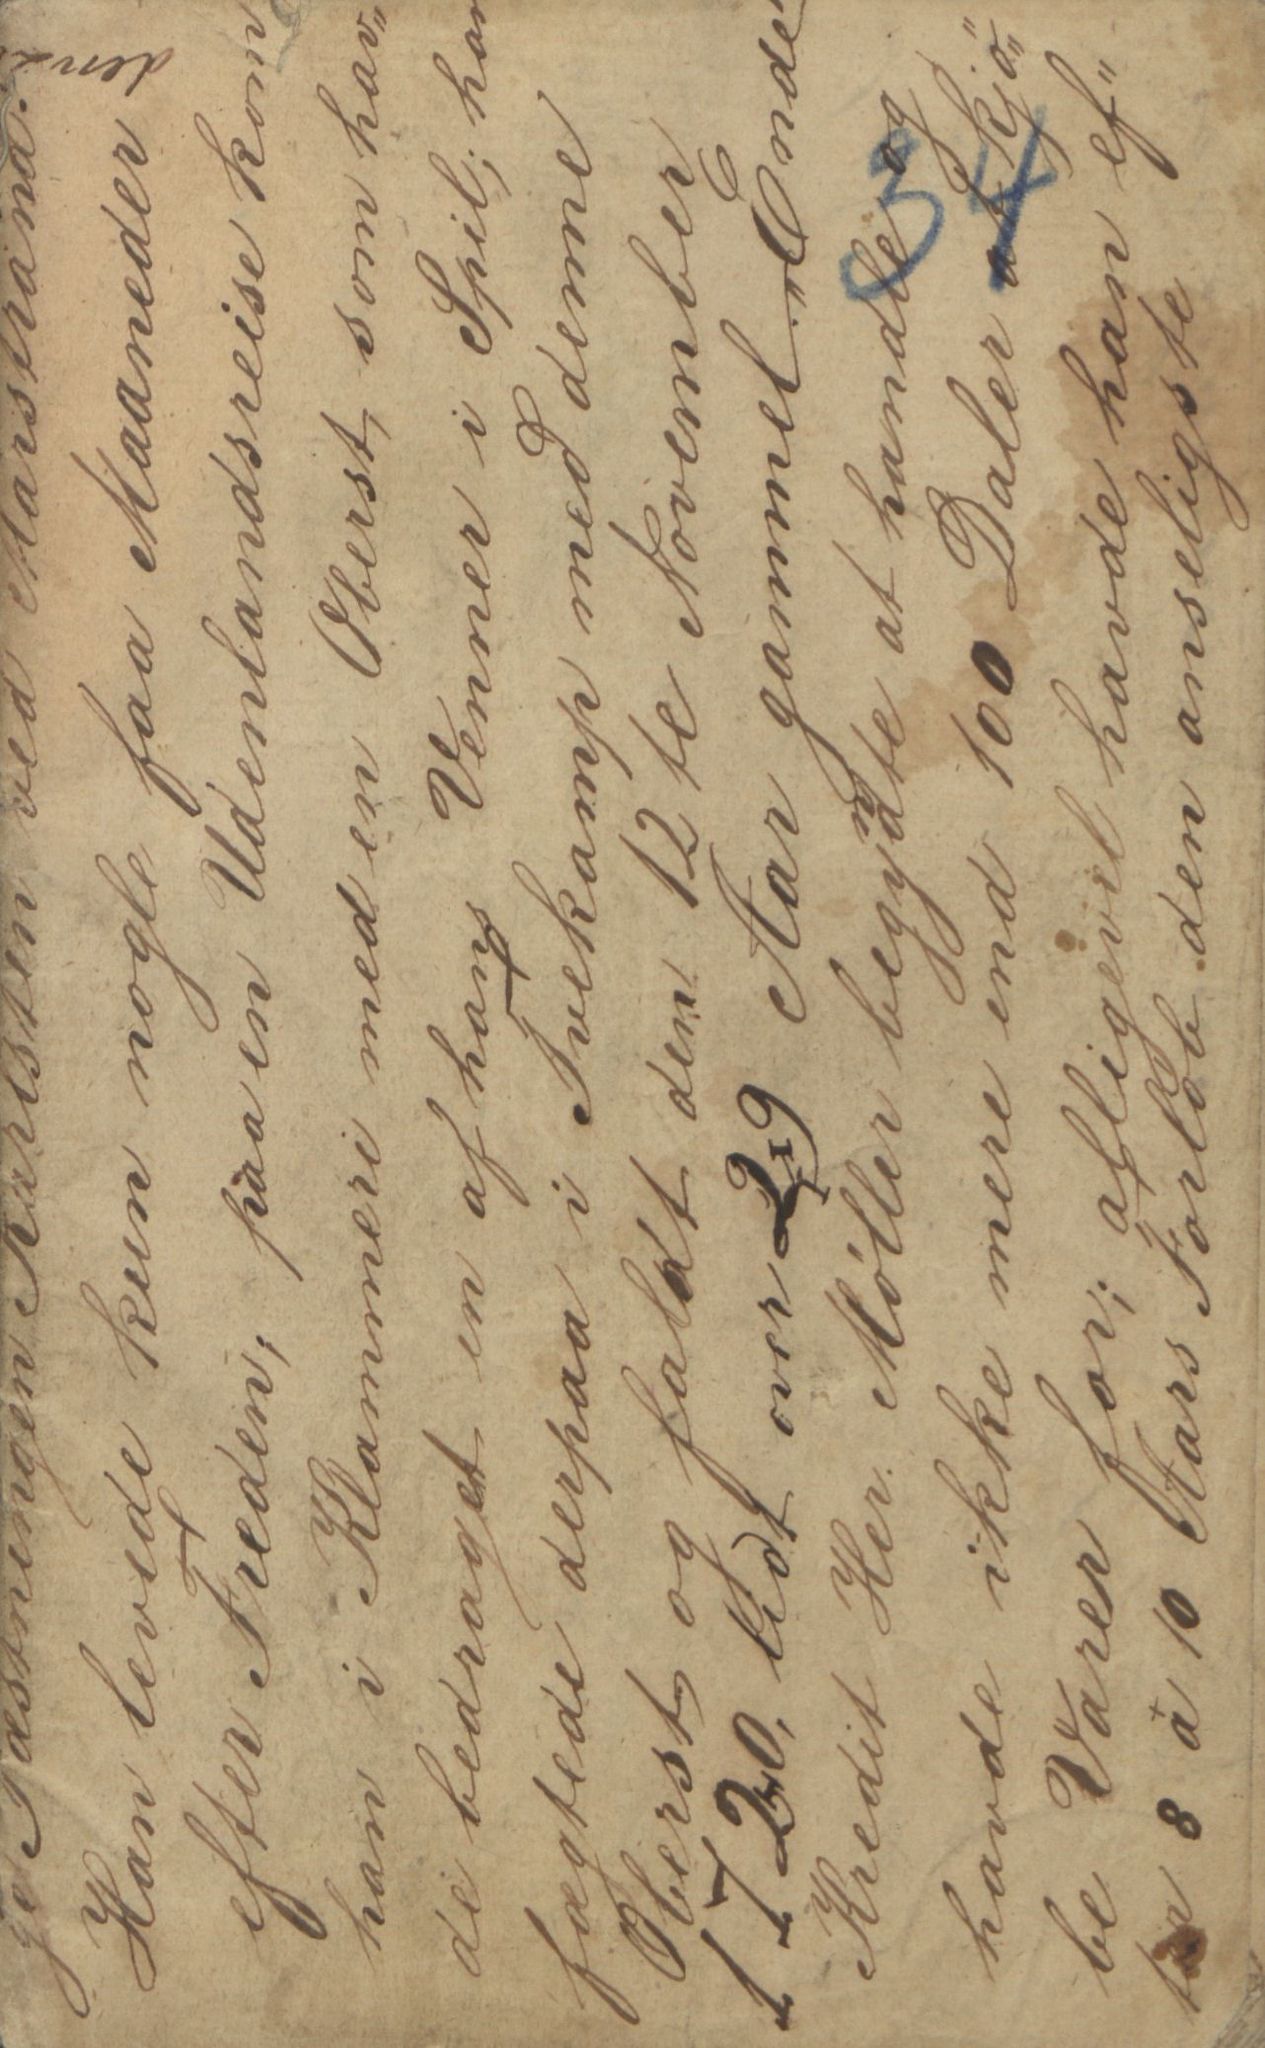 ge Fæstningen Karlsten ved Marstrand.
Han levede kun nogle faa Maaneder
efter Freden, paa en Udenlandsreise kom
han i Klammeri med en Oberst, som hav"
de bedraget en af hans Venner i Spil; han
fægtede derpaa i Tvekamp med denne
Oberst og faldt den 12te November
1720, lidt over 29 Aar gammel. "Onde
Kredit Her Möller begyndte at handle og
havde ikke mere end 100 Daler at kjö"
be Varer for; alligevel havde han ef"
ter 8 à 10 Aars Forløb den anseligste
34